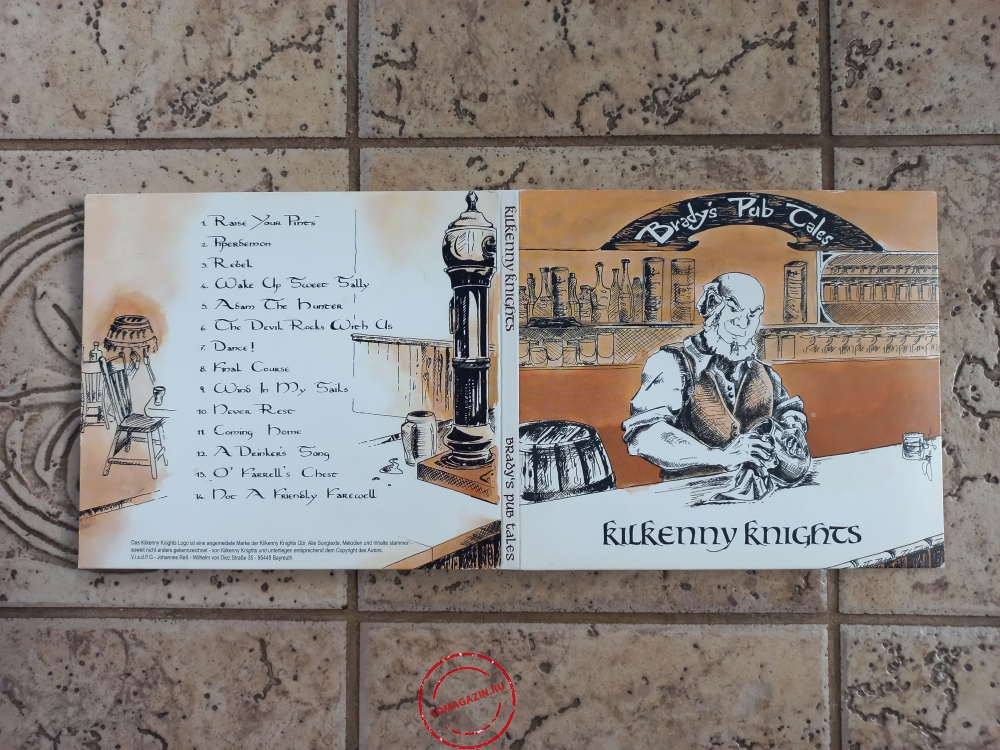 1. Raise Your Pints
2. Piperdemon
3. Rebel
4. Wake Up Sweet Sally
5. Adam The Hunter
6. The Devil Rocks With Us
7. Dance!
8. Final Course
9. Wind In My Sails
10. Never Rest
11. Coming Home
12. A Drinker's Song
13. O' Farrell's Chest
14. Not A Friendly Farewell
Das Kilkenny Knights Logo ist eine angemeldete Marke der Kilkenny Knights Gbr. Alle Songtexte, Melodien und Inhalte stammen -
soweit nicht anders gekennzeichnet - von Kilkenny Knights und unterliegen entsprechend dem Copyright des Autors.
V.i.s.d.P.G - Johannes Reß - Wilhelm von Diez Straße 35 - 95448 Bayreuth
kilkenny knights
Brady's pub tales
Brady's Pub Tales
kilkenny knights
CDMAGAZIN.RU